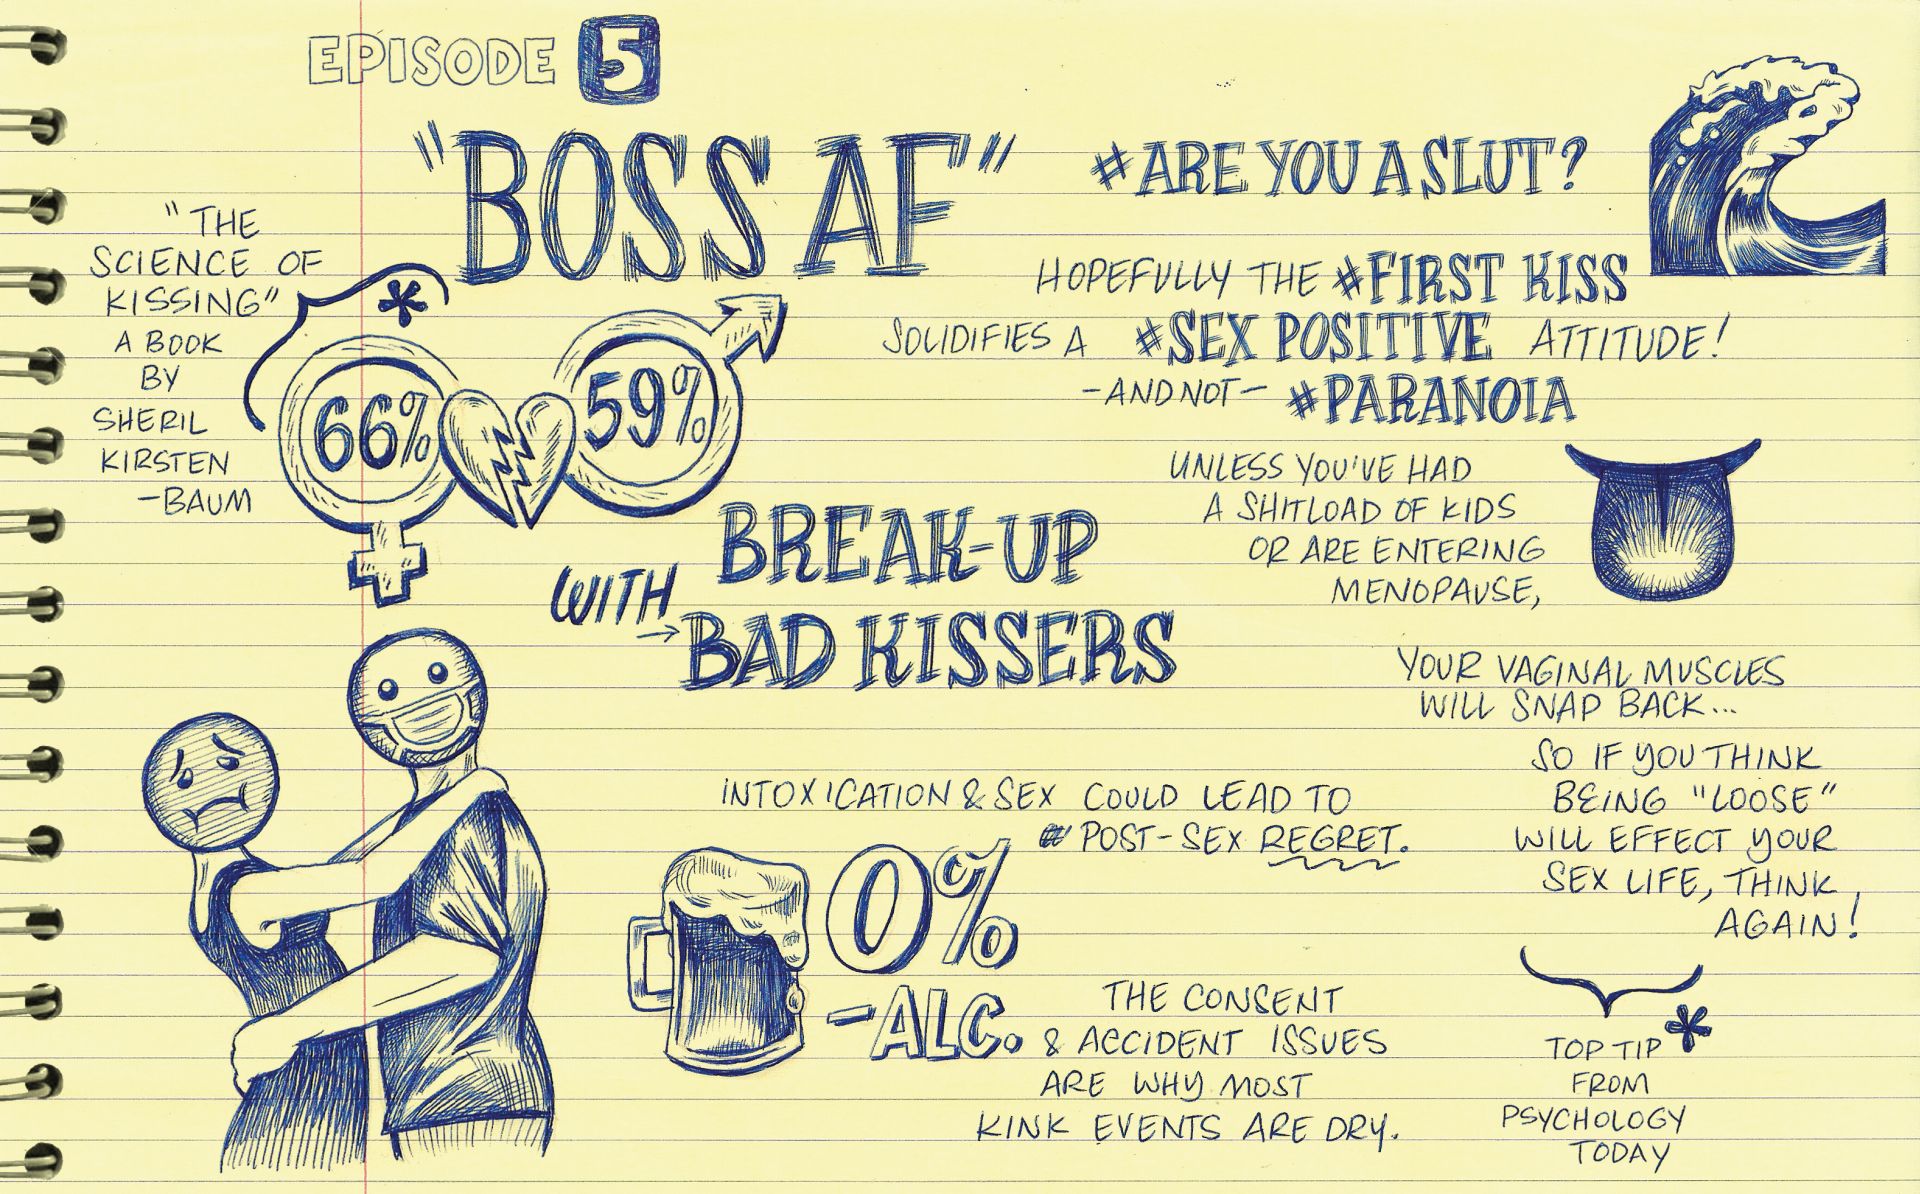 EPISODE 5
"BOSS AF"
"THE
SCIENCE OF
KISSING"
A BOOK
BY
SHERIL
KIRSTEN
-BAUM
*
66% 59%
BREAK-UP
WITH
BAD KISSERS
#ARE YOU A SLUT?
HOPEFULLY THE #FIRST KISS
SOLIDIFIES A #SEX POSITIVE ATTITUDE!
-AND NOT- #PARANOIA
UNLESS YOU'VE HAD
A SHITLOAD OF KIDS
OR ARE ENTERING
MENOPAUSE,
YOUR VAGINAL MUSCLES
WILL SNAP BACK...
SO IF YOU THINK
BEING "LOOSE"
WILL EFFECT YOUR
SEX LIFE, THINK
AGAIN!
TOP TIP *
FROM
PSYCHOLOGY
TODAY
INTOXICATION & SEX COULD LEAD TO
# POST-SEX REGRET.
0%
-ALC.
THE CONSENT
& ACCIDENT ISSUES
ARE WHY MOST
KINK EVENTS ARE DRY.